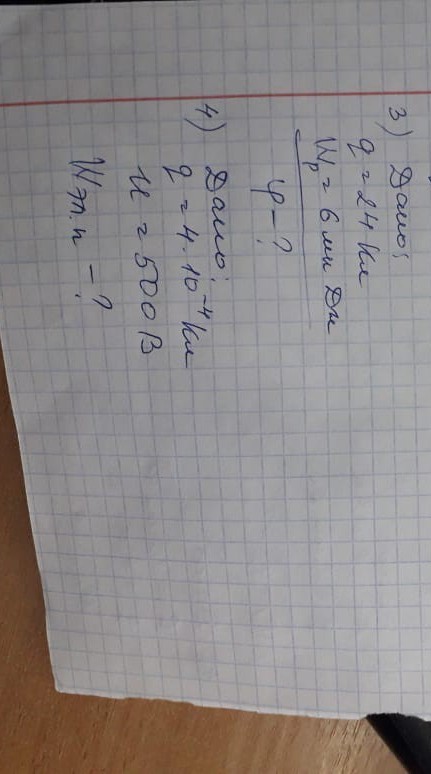 3) Дано:
q = 24 Кл
Wp = 6 мк Дж
φ - ?
4) Дано:
q = 4 · 10⁻⁴ Кл
U = 500 В
Wэ.п - ?